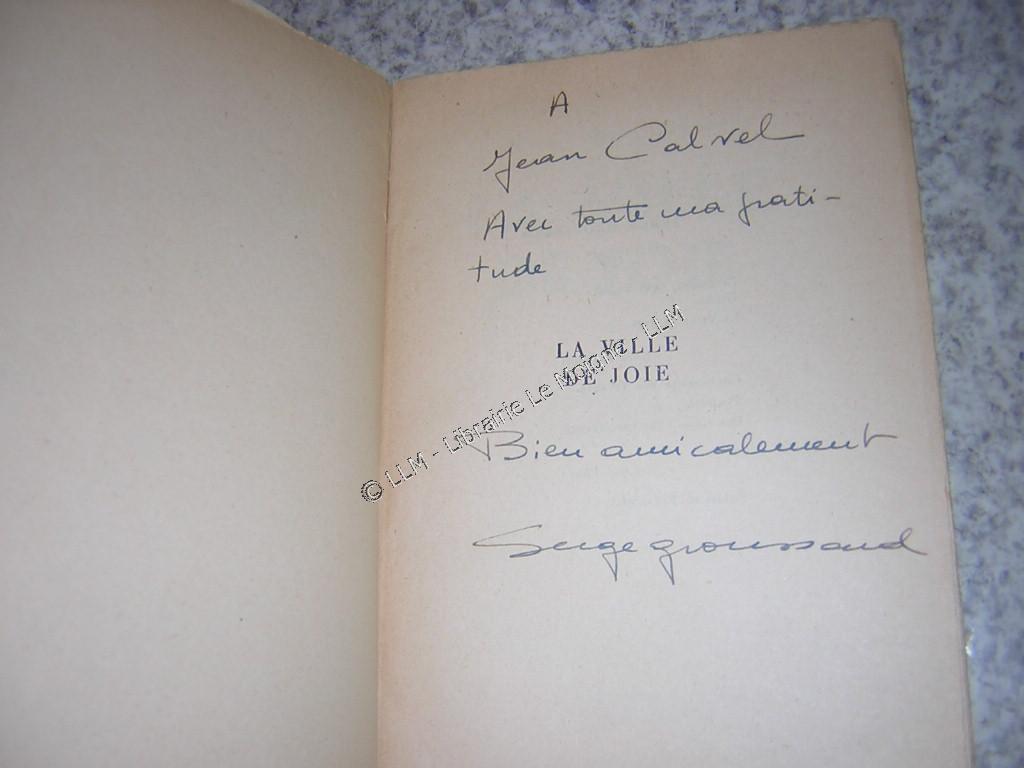 A
Jean Calvel
Avec toute ma grati-
tude
LA VILLE
DE JOIE
© LLM - Librairie Le Moigne - LLM
Bien amicalement
Serge Groussard